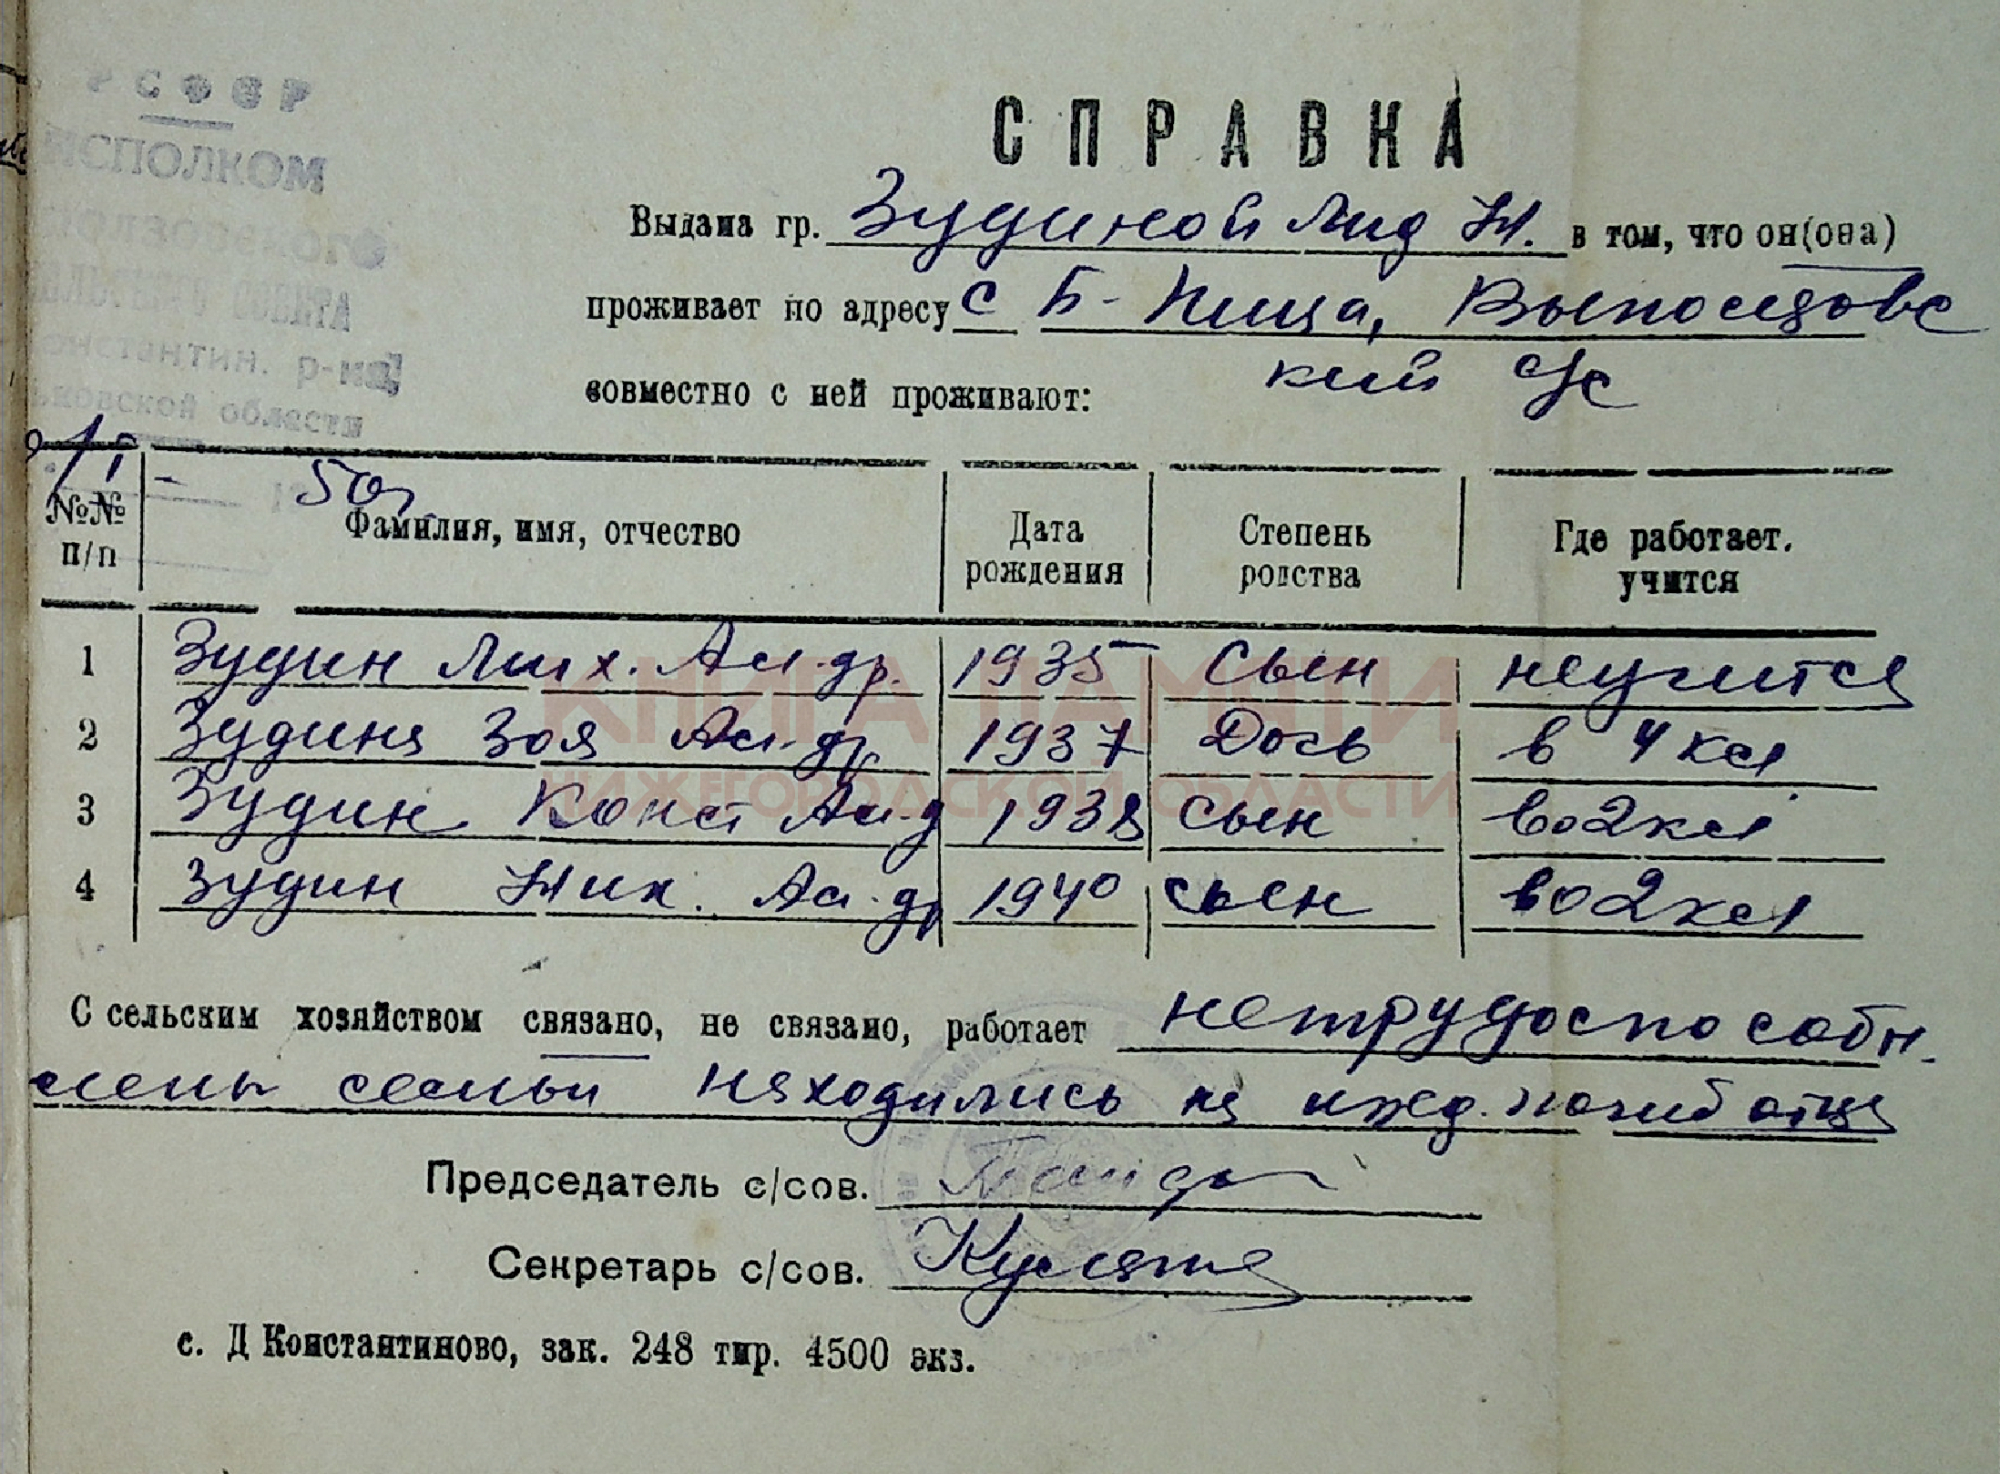 РСФСР
ИСПОЛКОМ
р-на
области
СПРАВКА
Выдана гр. Зудиной Лид Н. в том, что он(она)
проживает по адресу с Б-Пица,
кий с/с
совместно с ней проживают:
50г
№№ п/п Фамилия, имя, отчество Дата рождения Степень родства Где работает, учится
1 Зудин Мих. Ал-др. 1935 Сын неучится
2 Зудина Зоя Ал-др 1937 Дочь в 4 кл
3 Зудин Конст Ал-д 1938 сын во 2 кл
4 Зудин Ник. Ал-др 1940 сын во 2 кл
КНИГА ПАМЯТИ
НИЖЕГОРОДСКОЙ ОБЛАСТИ
С сельским хозяйством связано, не связано, работает нетрудоспособн.
члены семьи находились на ижд. погиб отца
Председатель с/сов.
Секретарь с/сов.
с. Д Константиново, зак. 248 тир. 4500 экз.